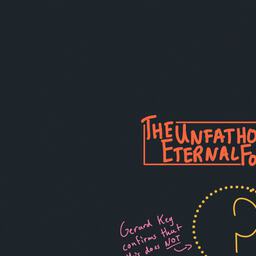 THE UNFATHO
ETERNAL FO
Gerard Key
confirms that
this does NOT
?